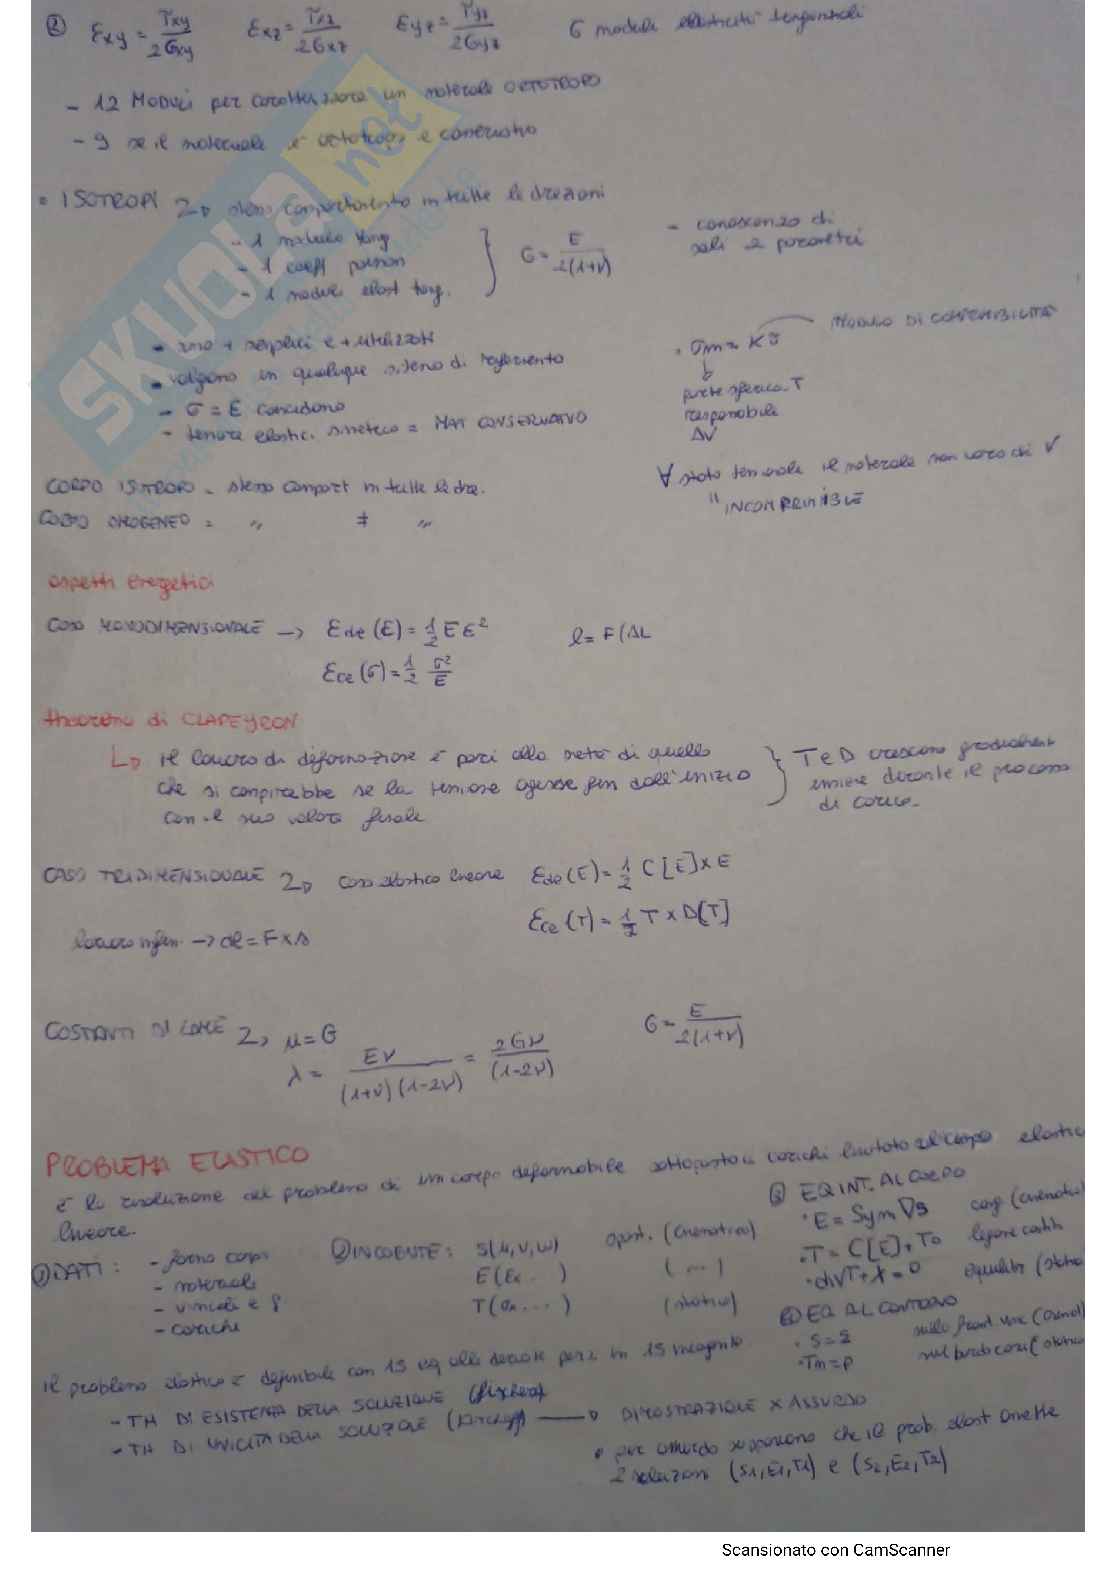 ② Exy = Txy / 2Gxy   Exz = Txz / 2Gxz   Eyz = Tyz / 2Gyz   6 moduli elasticità tangenziali
- 12 Moduli per caratterizzare un materiale ORTOTROPO
- 9 se il materiale è ortotropo e conservativo
• ISOTROPI → stesso comportamento in tutte le direzioni
- 1 modulo Yong
- 1 coeff poisson
- 1 modulo elast tang.
} G = E / 2(1+ν)
- conoscenza di
soli 2 parametri
- sono + semplici e + utilizzati
- valgono in qualunque sistema di riferimento
- σ = E coincidono
- tensore elastic. simmetrico = MAT CONSERVATIVO
• σm = Kϑ   MODULO DI COMPRIMIBILITÀ
parte sferica T
responsabile
ΔV
∀ stato tensionale il materiale non varia di V
" INCOMPRIMIBILE
CORPO ISOTROPO = stesso comport in tutte le dire.
CORPO OMOGENEO = " ≠ "
aspetti Energetici
CASO MONODIMENSIONALE → Ede (E) = 1/2 E E²   l = F(ΔL
Ece (σ) = 1/2 σ²/E
theorema di CLAPEYRON
↳ il lavoro di deformazione è pari alla metà di quello
che si compirebbe se la tensione agisse fin dall'inizio
con il suo valore finale
} T e D crescono gradualment
insieme durante il processo
di carico.
CASO TRIDIMENSIONALE → caso elastico lineare   Ede (E) = 1/2 C[E] x E
Ece (T) = 1/2 T x D[T]
lavoro infin. → dl = F x Δ
COSTANTI DI LAMÉ → μ = G   G = E / 2(1+ν)
λ = Eν / (1+ν)(1-2ν) = 2Gν / (1-2ν)
PROBLEMA ELASTICO
è la risoluzione del problema di un corpo deformabile sottoposto a carichi limitato al campo elastic
lineare.
① DATI : - forma corpo
- materiale
- vincoli e
- carichi
② INCOGNITE : S(u, v, w)   spost. (cinematica)
E (Ex .. )   ( ... )
T (σx ....)   (statica)
③ EQ INT. AL CORPO
• E = Sym ∇s   cong (cinematica)
• T = C[E] + T0   legame costit
• divT + X = 0   equilibr (statica
④ EQ AL CONTORNO
• S = ŝ   sulla front. vinc (cinemat)
• Tm = p
il problema elastico è definibile con 15 eq alle derivate parz in 15 incognite
- TH DI ESISTENZA DELLA SOLUZIONE (fixhera)
- TH DI UNICITÀ DELLA SOLUZIONE (Kirchoff) → DIMOSTRAZIONE X ASSURDO
• per assurdo supponiamo che il prob. elast amette
2 soluzioni (S1, E1, T1) e (S2, E2, T2)
SKUOLA.net
Scansionato con CamScanner